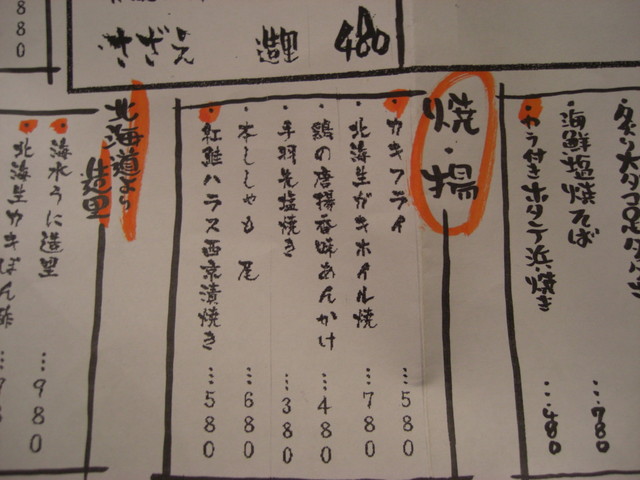 880
さざえ 造里 480
海鮮塩焼そば …780
カラ付きホタテ浜焼き …480
焼・揚
カキフライ …580
北海生ガキホイル焼 …780
鶏の唐揚香味あんかけ …480
手羽先塩焼き …380
本ししゃも 尾 …680
紅鮭ハラス西京漬焼き …580
北海道より
造里
海水うに造里 …980
北海生カキぽん酢